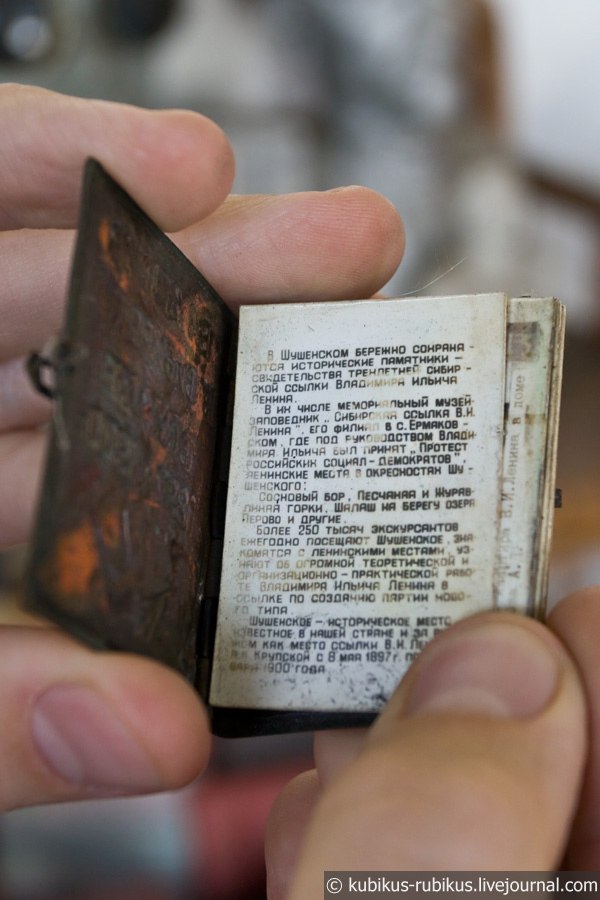 В Шушенском бережно сохраня-
ются исторические памятники –
свидетельства трехлетней сибир-
ской ссылки Владимира Ильича
Ленина.
В их числе мемориальный музей-
заповедник „Сибирская ссылка В.И.
Ленина", его филиал в с. Ермаков-
ском, где под руководством Влади-
мира Ильича был принят „Протест
российских социал-демократов",
ленинские места в окрестностях Шу-
шенского:
Сосновый бор, Песчаная и Журав-
линая горки, шалаш на берегу озера
Перово и другие.
Более 250 тысяч экскурсантов
ежегодно посещают Шушенское, зна-
комятся с ленинскими местами, уз-
нают об огромной теоретической и
организационно – практической рабо-
те Владимира Ильича Ленина в
ссылке по созданию партии ново-
го типа.
Шушенское – историческое место,
известное в нашей стране и за
как место ссылки В.И.
Крупской с 8 мая 1897г. по
1900 года
В.И. Ленина в доме
А.
© kubikus-rubikus.livejournal.com